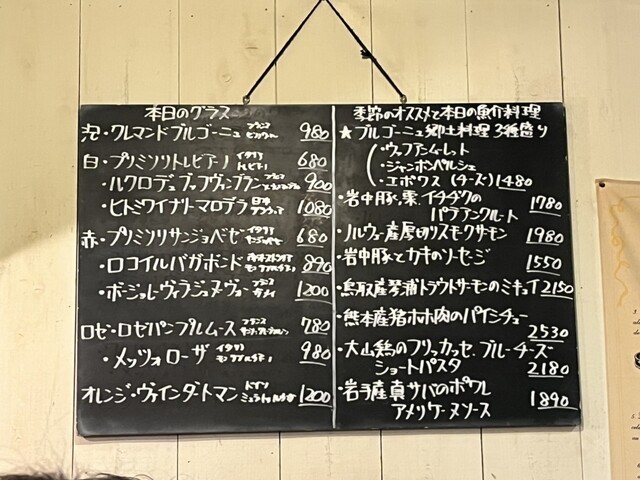 本日のグラス
泡・クレマンドブルゴーニュ フランス 980
白・プリミソリトレビアーノ イタリア トレビアーノ 680
・ルクロデュブップヴァンブラン フランス 900
・ヒトミワイナリートマロデラ 日本 デラウェア 1080
赤・プリミソリサンジョベゼ イタリア サンジョベーゼ 680
・ロコイルバガボンド モンテプルチアーノ 890
・ボジョレヴィラジュヌヴォー フランス ガメイ 1200
ロゼ・ロゼパンプルムース フランス 780
・メッツォローザ イタリア モンテプルチアーノ 980
オレンジ・ヴァインダートマン ドイツ ミュラートゥルガウ 1200
季節のオススメと本日の魚介料理
★ブルゴーニュ郷土料理 3種盛り
・ウッフアンムーレット
・ジャンボンペルシェ
・エポワス (チーズ) 1480
・岩中豚、栗、イチヂクの
パテアンクルート 1780
・ノルウェー産厚切りスモークサモン 1980
・岩中豚とカキのソーセージ 1550
・鳥取産琴浦トラウトサーモンのミキュイ 2150
・熊本産猪ホホ肉のパイシチュー
2530
・大山鶏のフリッカッセ、ブルーチーズ
ショートパスタ 2180
・岩手産真サバのポワレ
アメリケーヌソース 1890